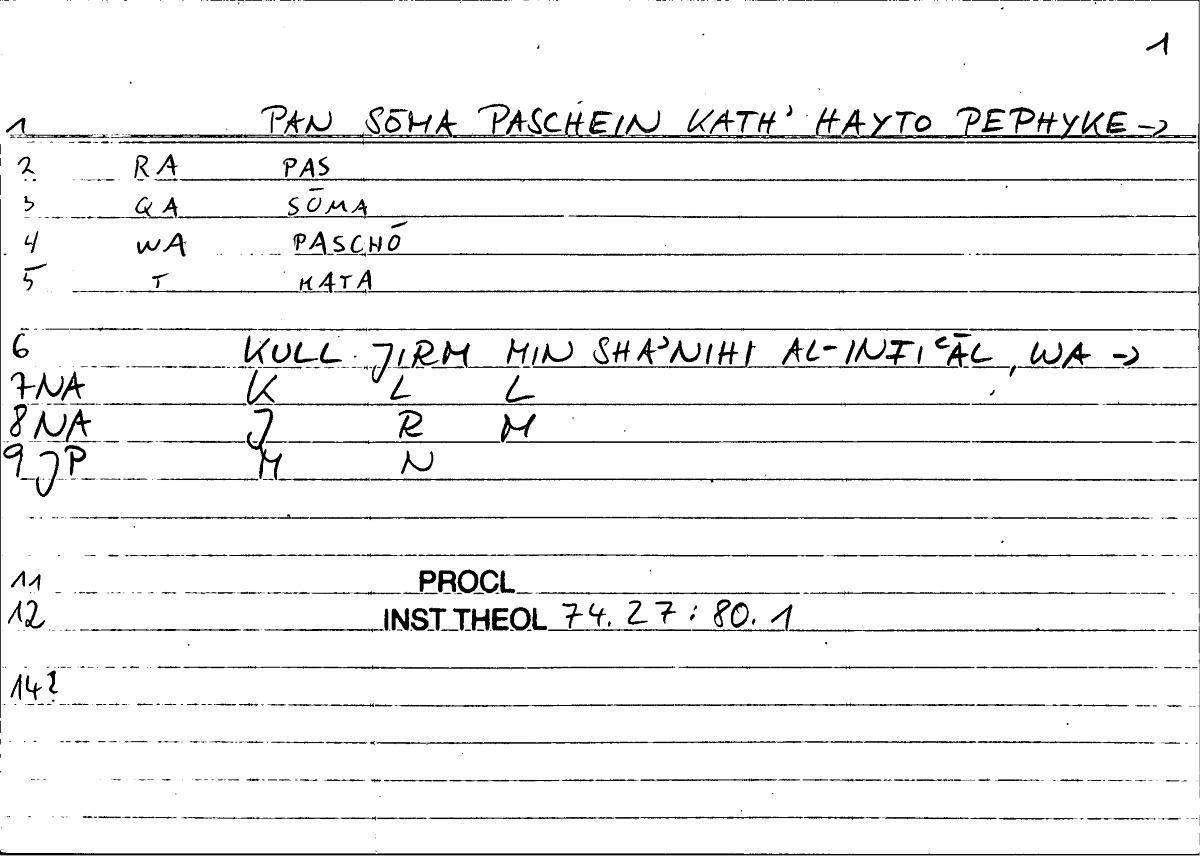 1
1 PAN SŌMA PASCHEIN KATH' HAYTO PEPHYKE →
2 RA PAS
3 QA SŌMA
4 WA PASCHŌ
5 T KATA
6 KULL JIRM MIN SHAʾNIHI AL-INFIʿĀL, WA →
7 NA K L L
8 NA J R M
9 JP M N
11 PROCL
12 INST THEOL 74.27: 80.1
14 2